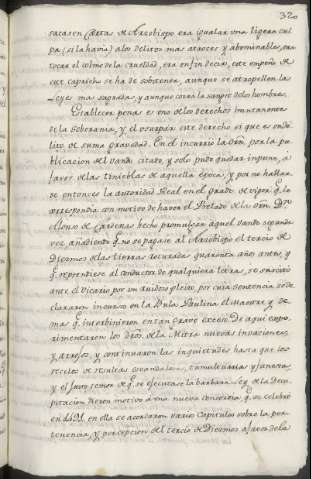 320
sacasen Carta de Arzobispo era igualar una ligera cul
pa (si la havia) a los delitos mas atroces y abominables, era
tocar el colmo de la crueldad, era en fin decir, este empeño de
este capricho se ha de sostener, aunque se atropellen las
Leyes mas sagradas, y aunque corra la sangre de los hombres.
Establecer penas es uno de los derechos inmanentes
de la Soberania, y el usurpar este derecho si que es un de
lito de suma gravedad. En el incurrio la Dign. por la pu
blicacion del Vando citado, y solo pudo quedar impune, a
favor de las tinieblas de aquella epoca, y por no hallar
se entonces la autoridad Real en el grado de vigor q. le
correspondia con motivo de haver el Prelado de la Dign. Dn.
Alonso de Cardenas hecho promulgar aquel Vando segunda
vez, añadiendo q. no se pagase al Arzobispo el tercio de
Diezmos de las tierras
quarenta años antes, y
q. se prendiese al conductor de qualquiera letras, se
ante el Vicario por un
pleito, por cuia sentencia, se de
clararon incurso en la Bula Paulina el Maestre y de
mas q. intervinieron en tan grave exceso. De aqui
rimentaron los dros. de la Mitra nuevas invasiones,
y
, y continuaron las inquietudes hasta que los
recelos de resultas escandalosas, tumultuarias y funestas,
y el justo temor de q. se ejecutase la barbara Ley de la Dipu
tacion dieron motivo a una nueva concordia q. se celebró
en
, en ella se acordaron varios Capitulos sobre la per
tenencia, y percepcion del tercio de Diezmos a favor de la